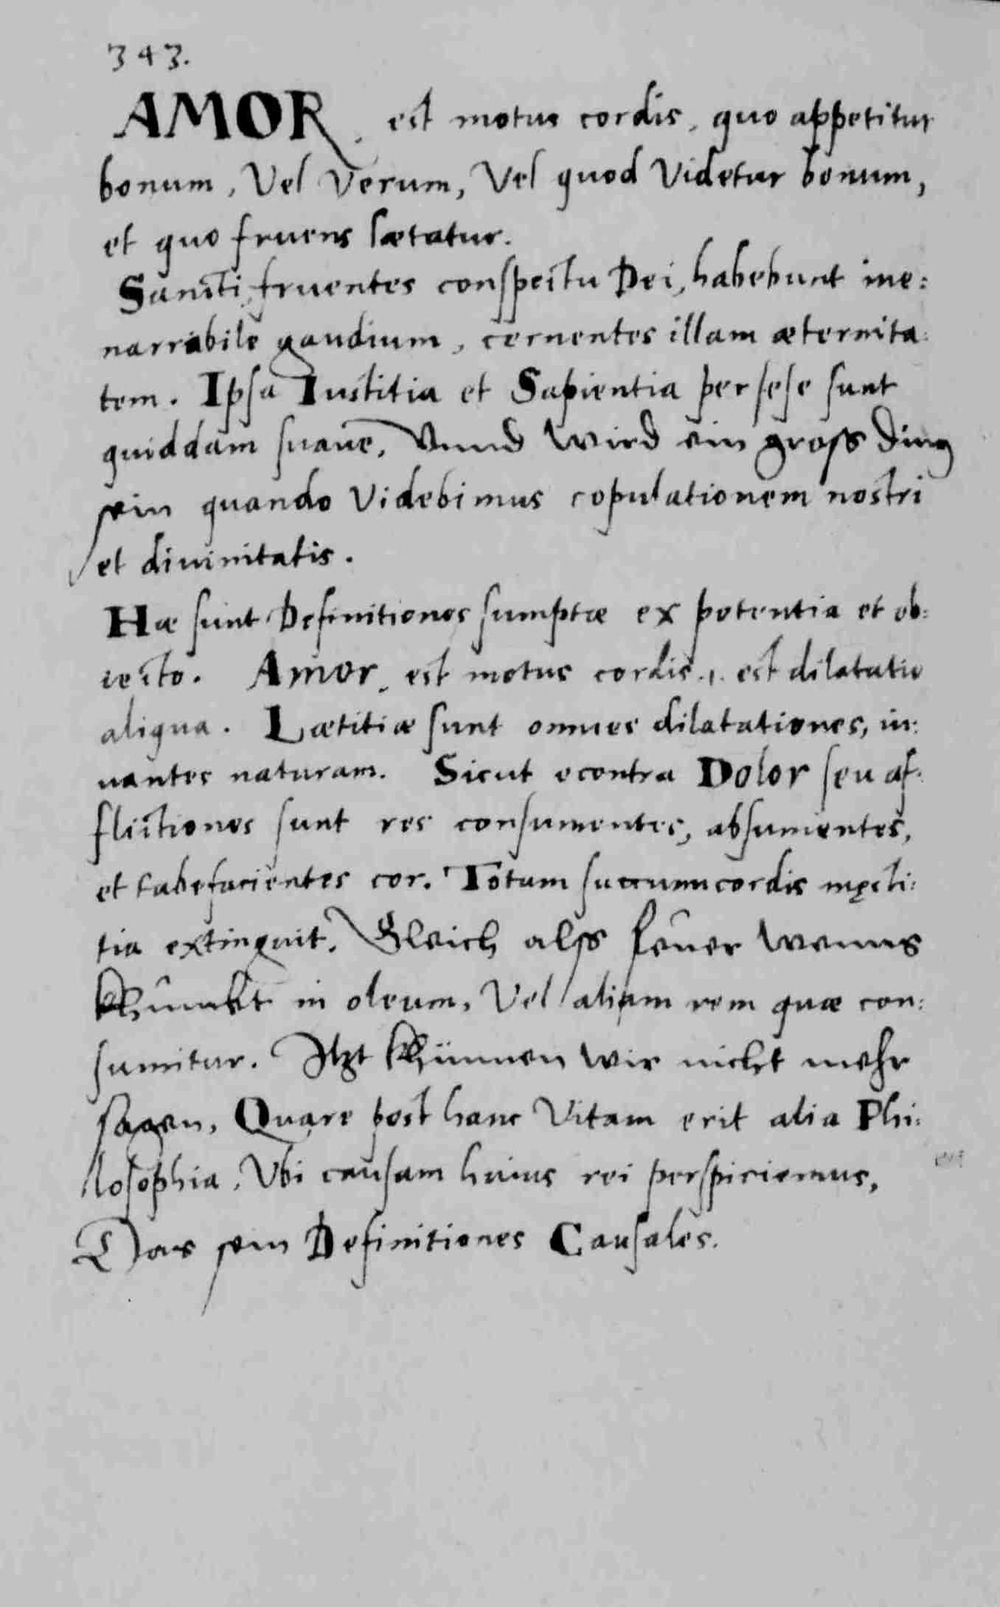 343.
AMOR, est motus cordis, quo appetitur
bonum, Vel Verum, Vel quod Videtur bonum,
et quo fruens lætatur.
Sancti fruentes conspectu Dei, habebunt ine:
narrabile gaudium, cernentes illam æternita:
tem. Ipsa Iustitia et Sapientia per sese sunt
quiddam suaue. Vnnd wird ein gross ding
sein quando Videbimus copulationem nostri
et diuinitatis.
Hæ sunt Definitiones sumptæ ex potentia et ob:
iecto. Amor, est motus cordis .i. est dilatatio
aliqua. Lætitiæ sunt omnes dilatationes, iu:
uantes naturam. Sicut econtra Dolor seu af:
flictiones sunt res consumentes, absumentes,
et tabefacientes cor. Totum succum cordis męsti:
tia extinguit. Gleich alss feuer wenns
khumbt in oleum, Vel aliam rem quæ con:
sumitur. Itzt khünnen wir nicht mehr
sagen, Quare post hanc Vitam erit alia Phi:
losophia, Vbi causam huius rei perspiciemus,
Das sein Definitiones Causales.